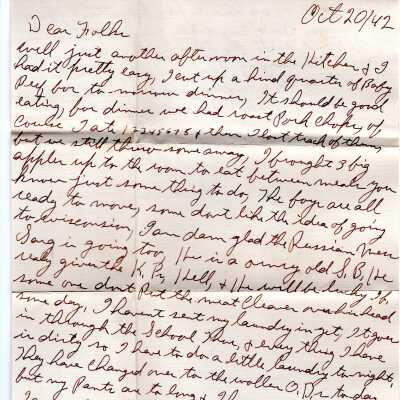 Oct 20/42
Dear Folks
well just another afternoon in the Kitchen & I
had it pretty easy, I cut up a hind quarter of Baby
Beef for to morrow dinner, It should be good
eating, for dinner we had roast Pork Chops, of
course I ate 12345678 & then I lost track of them
but we still threw some away, I brought 3 big
apples up to the room to eat between meals you
know just some thing to do, The boys are all
ready to move, some dont like the idea of going
to wisconsin, I am dam glad the Russian Mess
Sarg is going too, He is a ornry old S.B, He
realy gives the K.P. Hell, & He will be lucky if
some one dont Put the meat cleaver over his head
some day, I havent sent my laundry in yet, its over
in through the School Thur, & every thing I have
is dirty so I have to do a little laundry to night,
They have changed over to the wollen O,Ds to day
but my Pants are to long &